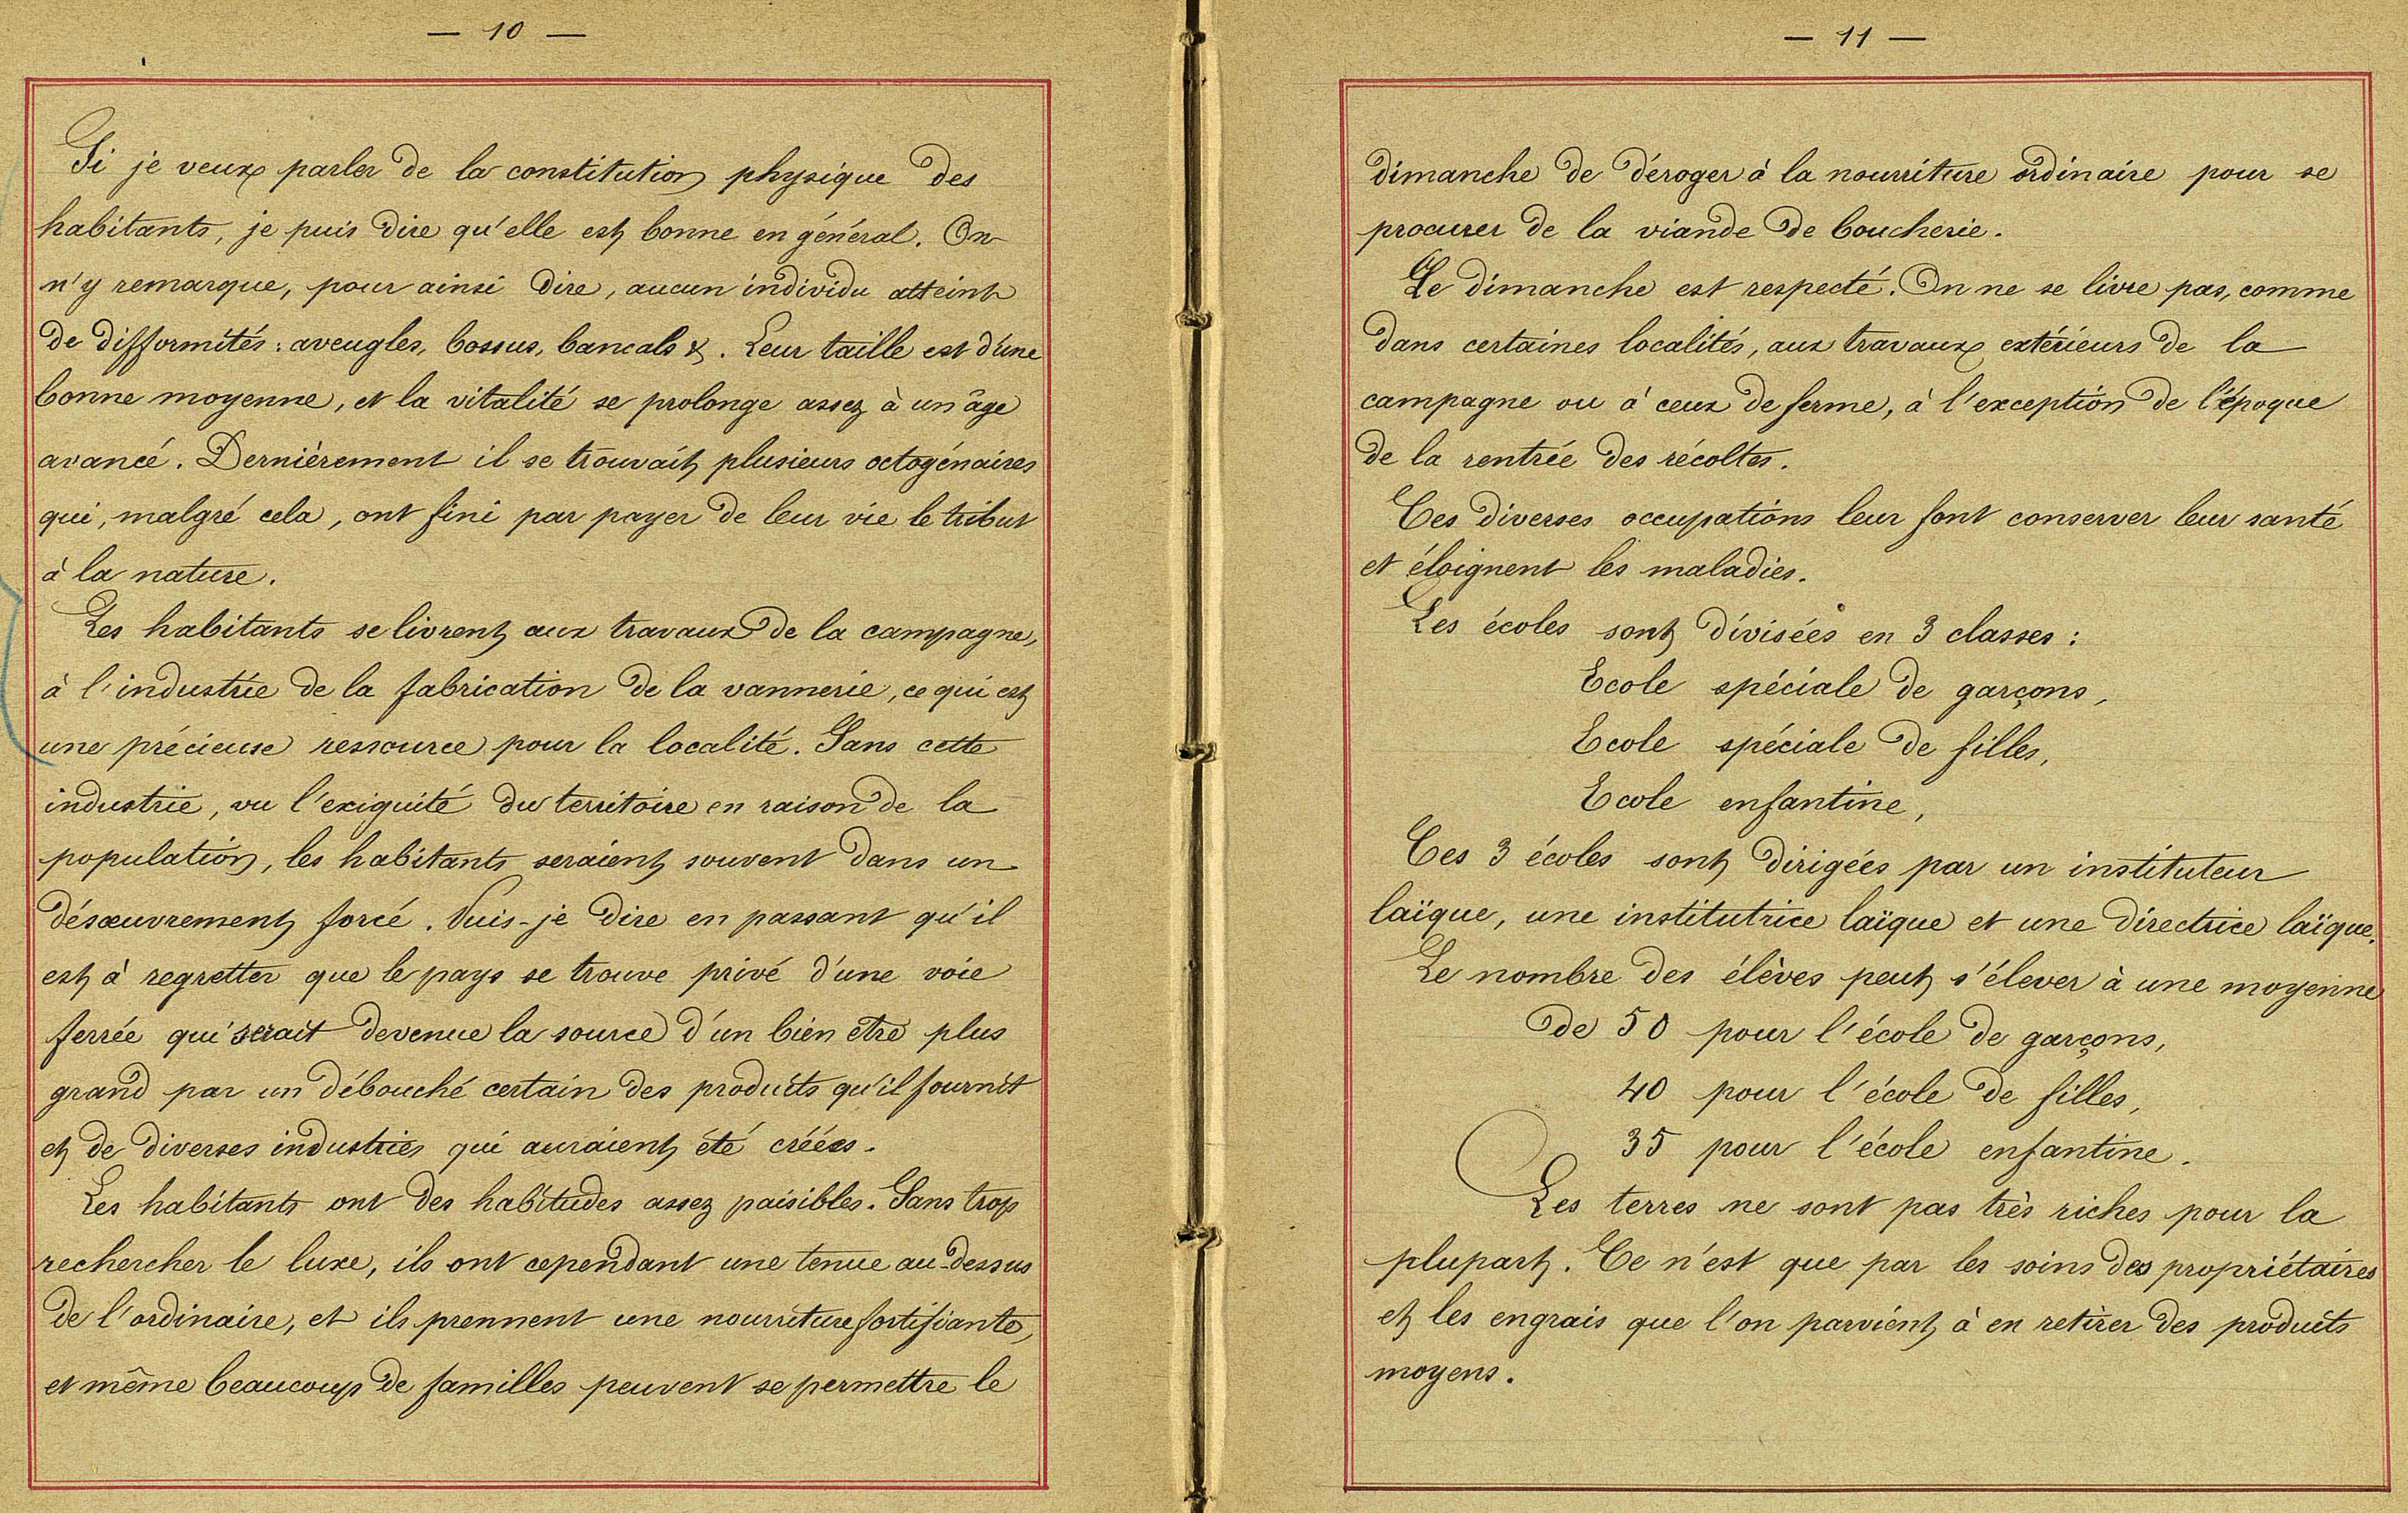 — 10 —
Si je veux parler de la constitution physique des
habitants, je puis dire qu'elle est bonne en général. On
n'y remarque, pour ainsi dire, aucun individu atteint
de difformités : aveugles, bossus, bancals &. Leur taille est d'une
bonne moyenne, et la vitalité se prolonge assez à un âge
avancé. Dernièrement il se trouvait plusieurs octogénaires
qui, malgré cela, ont fini par payer de leur vie le tribut
à la nature.
Les habitants se livrent aux travaux de la campagne,
à l'industrie de la fabrication de la vannerie, ce qui est
une précieuse ressource pour la localité. Sans cette
industrie, vu l'exiguité du territoire en raison de la
population, les habitants seraient souvent dans un
désœuvrement forcé. Puis-je dire en passant qu'il
est à regretter que le pays se trouve privé d'une voie
ferrée qui serait devenue la source d'un bien etre plus
grand par un débouché certain des produits qu'il fournit
et de diverses industries qui auraient été créées.
Les habitants ont des habitudes assez paisibles. Sans trop
rechercher le luxe, ils ont cependant une tenue au-dessus
de l'ordinaire, et ils prennent une nourriture fortifiante,
et même beaucoup de familles peuvent se permettre le
— 11 —
dimanche de déroger à la nourriture ordinaire pour se
procurer de la viande de boucherie.
Le dimanche est respecté. On ne se livre pas, comme
dans certaines localités, aux travaux extérieurs de la
campagne ou à ceux de ferme, à l'exception de l'époque
de la rentrée des récoltes.
Ces diverses occupations leur font conserver leur santé
et éloignent les maladies.
Les écoles sont divisées en 3 classes :
Ecole spéciale de garçons,
Ecole spéciale de filles,
Ecole enfantine,
Ces 3 écoles sont dirigées par un instituteur
laïque, une institutrice laïque et une directrice laïque.
Le nombre des élèves peut s'élever à une moyenne
de 50 pour l'école de garçons,
40 pour l'école de filles,
35 pour l'école enfantine.
Les terres ne sont pas très riches pour la
plupart. Ce n'est que par les soins des propriétaires
et les engrais que l'on parvient à en retirer des produits
moyens.